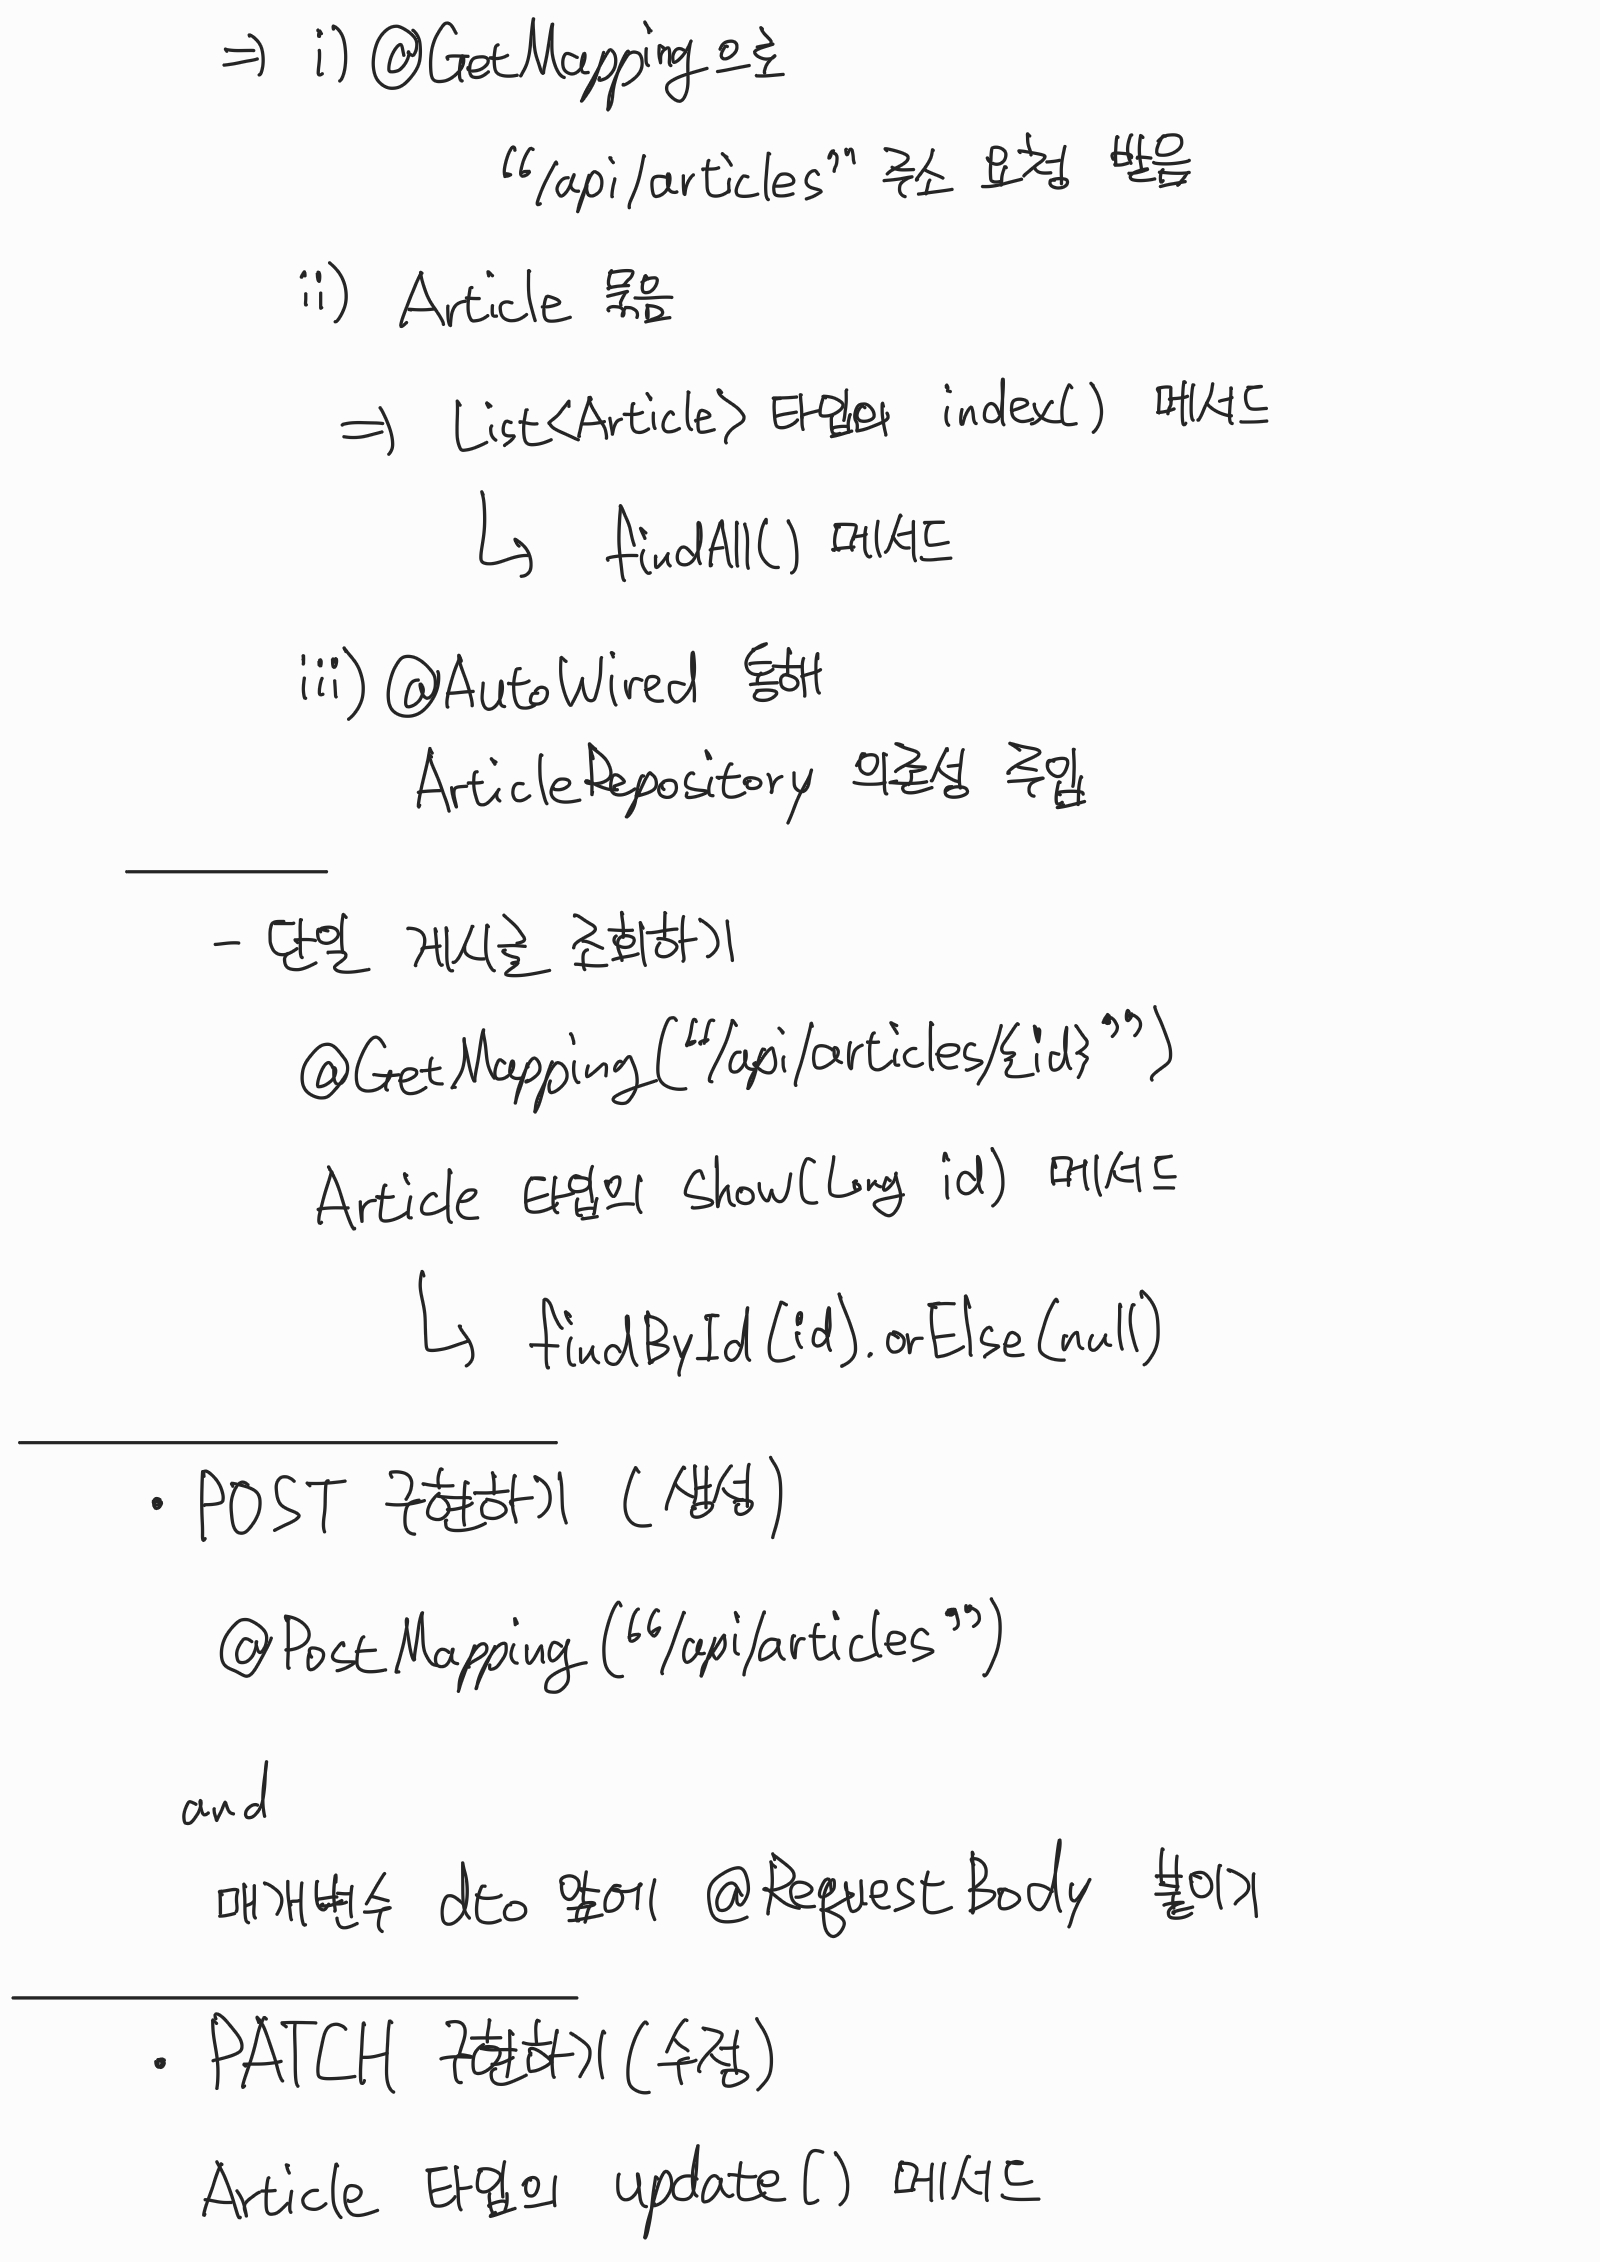 ⇒ i) @GetMapping으로
“/api/articles” 주소 요청 받음
ii) Article 묶음
⇒ List<Article> 타입의 index() 메서드
↳ findAll() 메서드
iii) @AutoWired 통해
ArticleRepository 의존성 주입
- 단일 게시글 조회하기
@GetMapping(“/api/articles/{id}”)
Article 타입의 show(Long id) 메서드
↳ findById(id).orElse(null)
• POST 구현하기 (생성)
@PostMapping(“/api/articles”)
and
매개변수 dto 앞에 @RequestBody 붙이기
• PATCH 구현하기(수정)
Article 타입의 update() 메서드